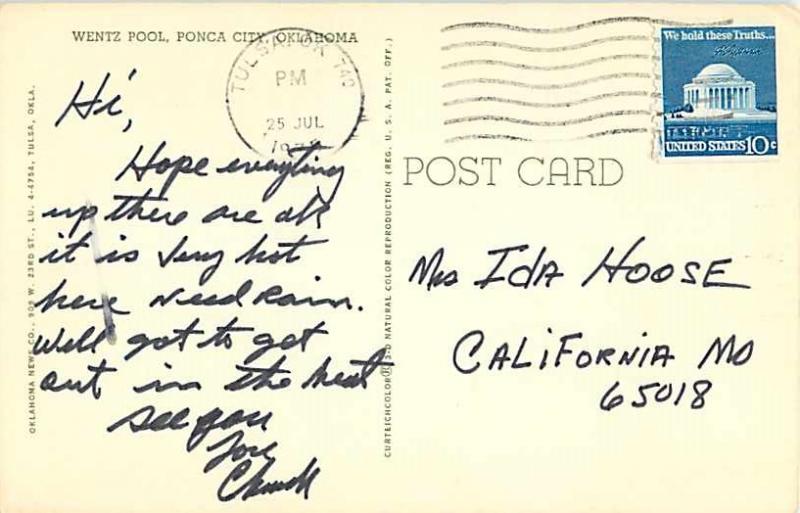 WENTZ POOL, PONCA CITY, OKLAHOMA
Hi,
Hope everything
up there are ok
it is very hot
here need Rain.
Well got to get
out in the heat
see you
Love
Chuck
OKLAHOMA NEWS CO., 909 W. 23RD ST., LU. 4-4754, TULSA, OKLA.
CURTEICHCOLOR® 3-D NATURAL COLOR REPRODUCTION (REG. U. S. A. PAT. OFF.)
TULSA, OK 740
PM
25 JUL
We hold these Truths...
UNITED STATES 10c
POST CARD
Mrs IDA HOOSE
CALiFORNiA MO
65018